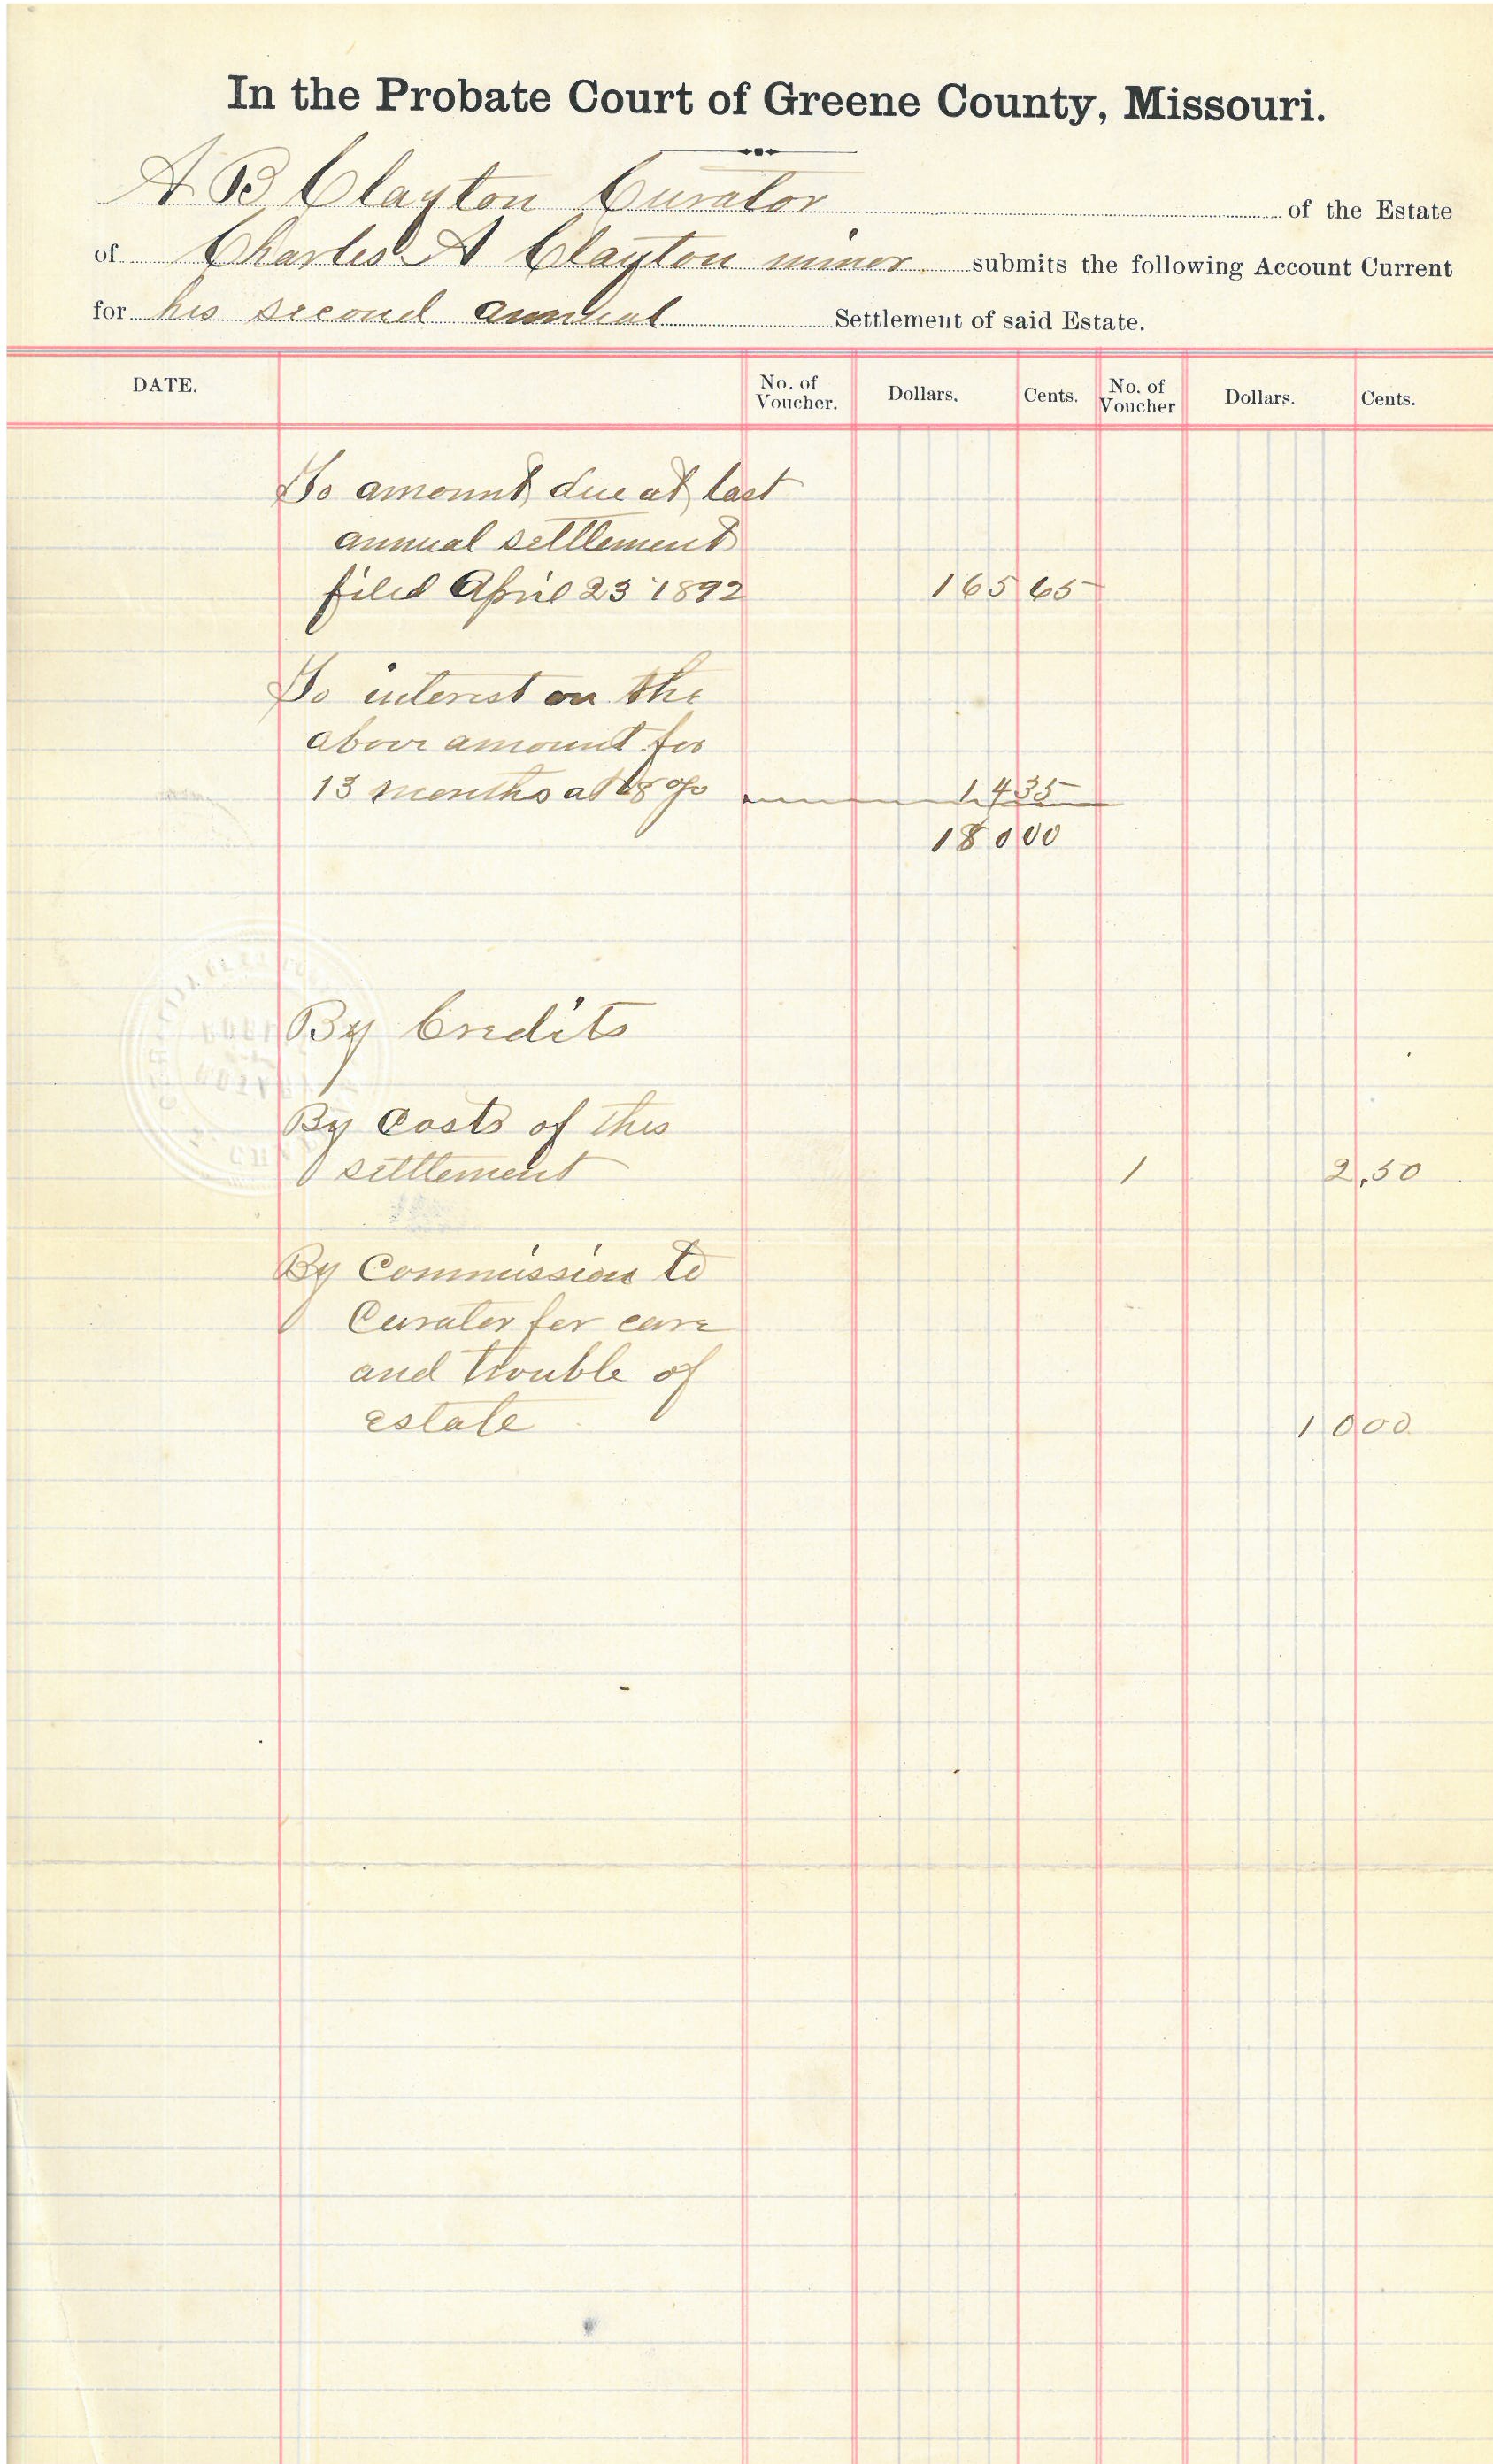 In the Probate Court of Greene County, Missouri.
A B Clayton Curator of the Estate
of Charles A Clayton minor submits the following Account Current
for his second annual Settlement of said Estate.
DATE. No. of Voucher. Dollars. Cents. No. of Voucher Dollars. Cents.
To amount due at last
annual settlement
filed April 23 1892 165 65
To interest on the
above amount for
13 months at 8 % 14 35
180 00
By Credits
By Costs of this
settlement 1 2.50
By Commission to
Curator for care
and trouble of
estate 10 00